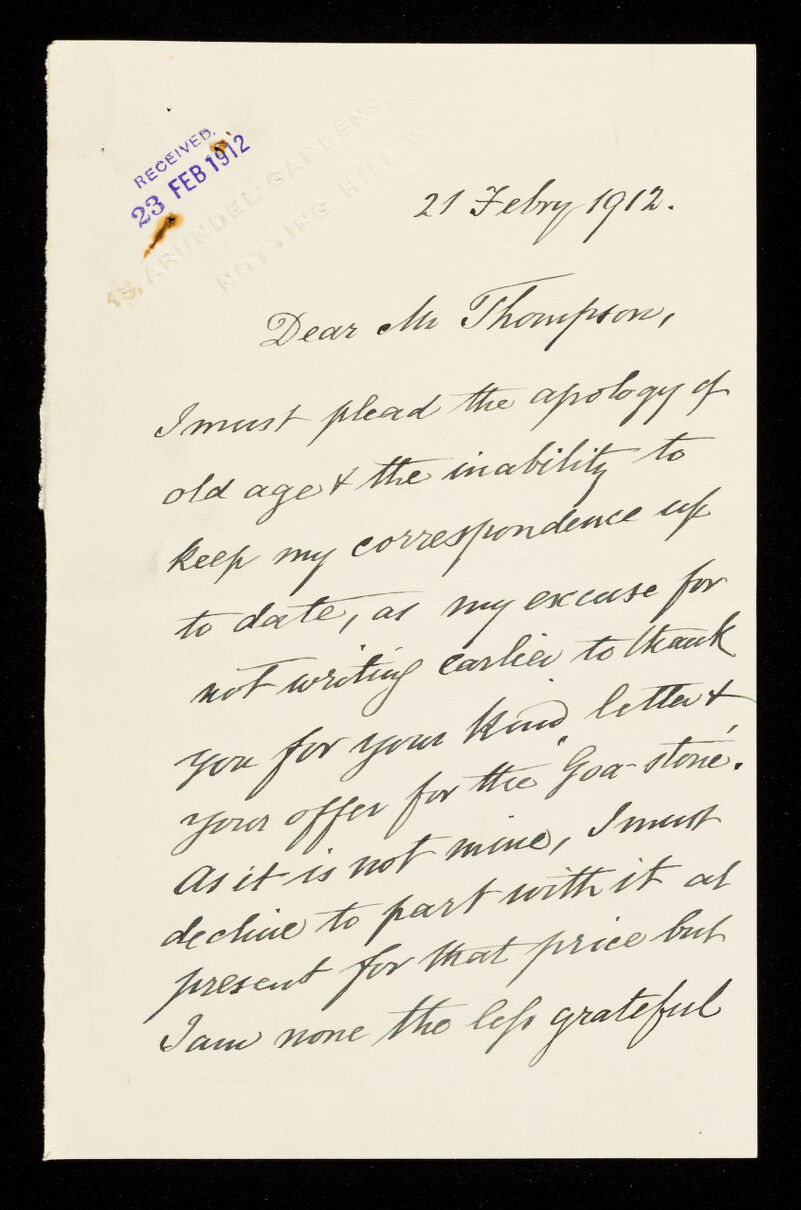 RECEIVED.
23 FEB 1912
13, ARUNDEL GARDENS,
NOTTING HILL W.
21 Febry 1912.
Dear Mr Thompson,
I must plead the apology of
old age & the inability to
keep my correspondence up
to date, as my excuse for
not writing earlier to thank
you for your kind letter &
your offer for the "Goa-stone".
As it is not mine, I must
decline to part with it at
present for that price but
I am none the less grateful